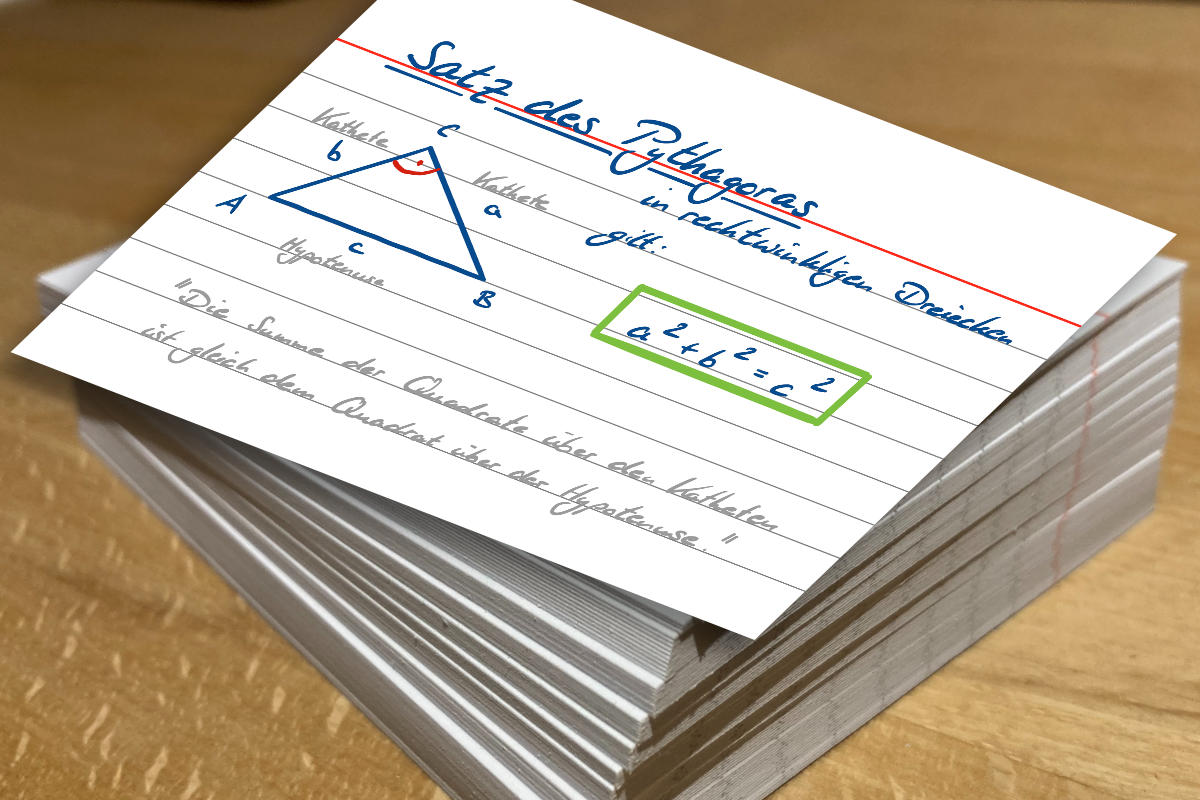 Satz des Pythagoras
in rechtwinkligen Dreiecken
gilt:
C
Kathete
b
Kathete
a
A
c
Hypotenuse
B
a² + b² = c²
"Die Summe der Quadrate über den Katheten
ist gleich dem Quadrat über der Hypotenuse."